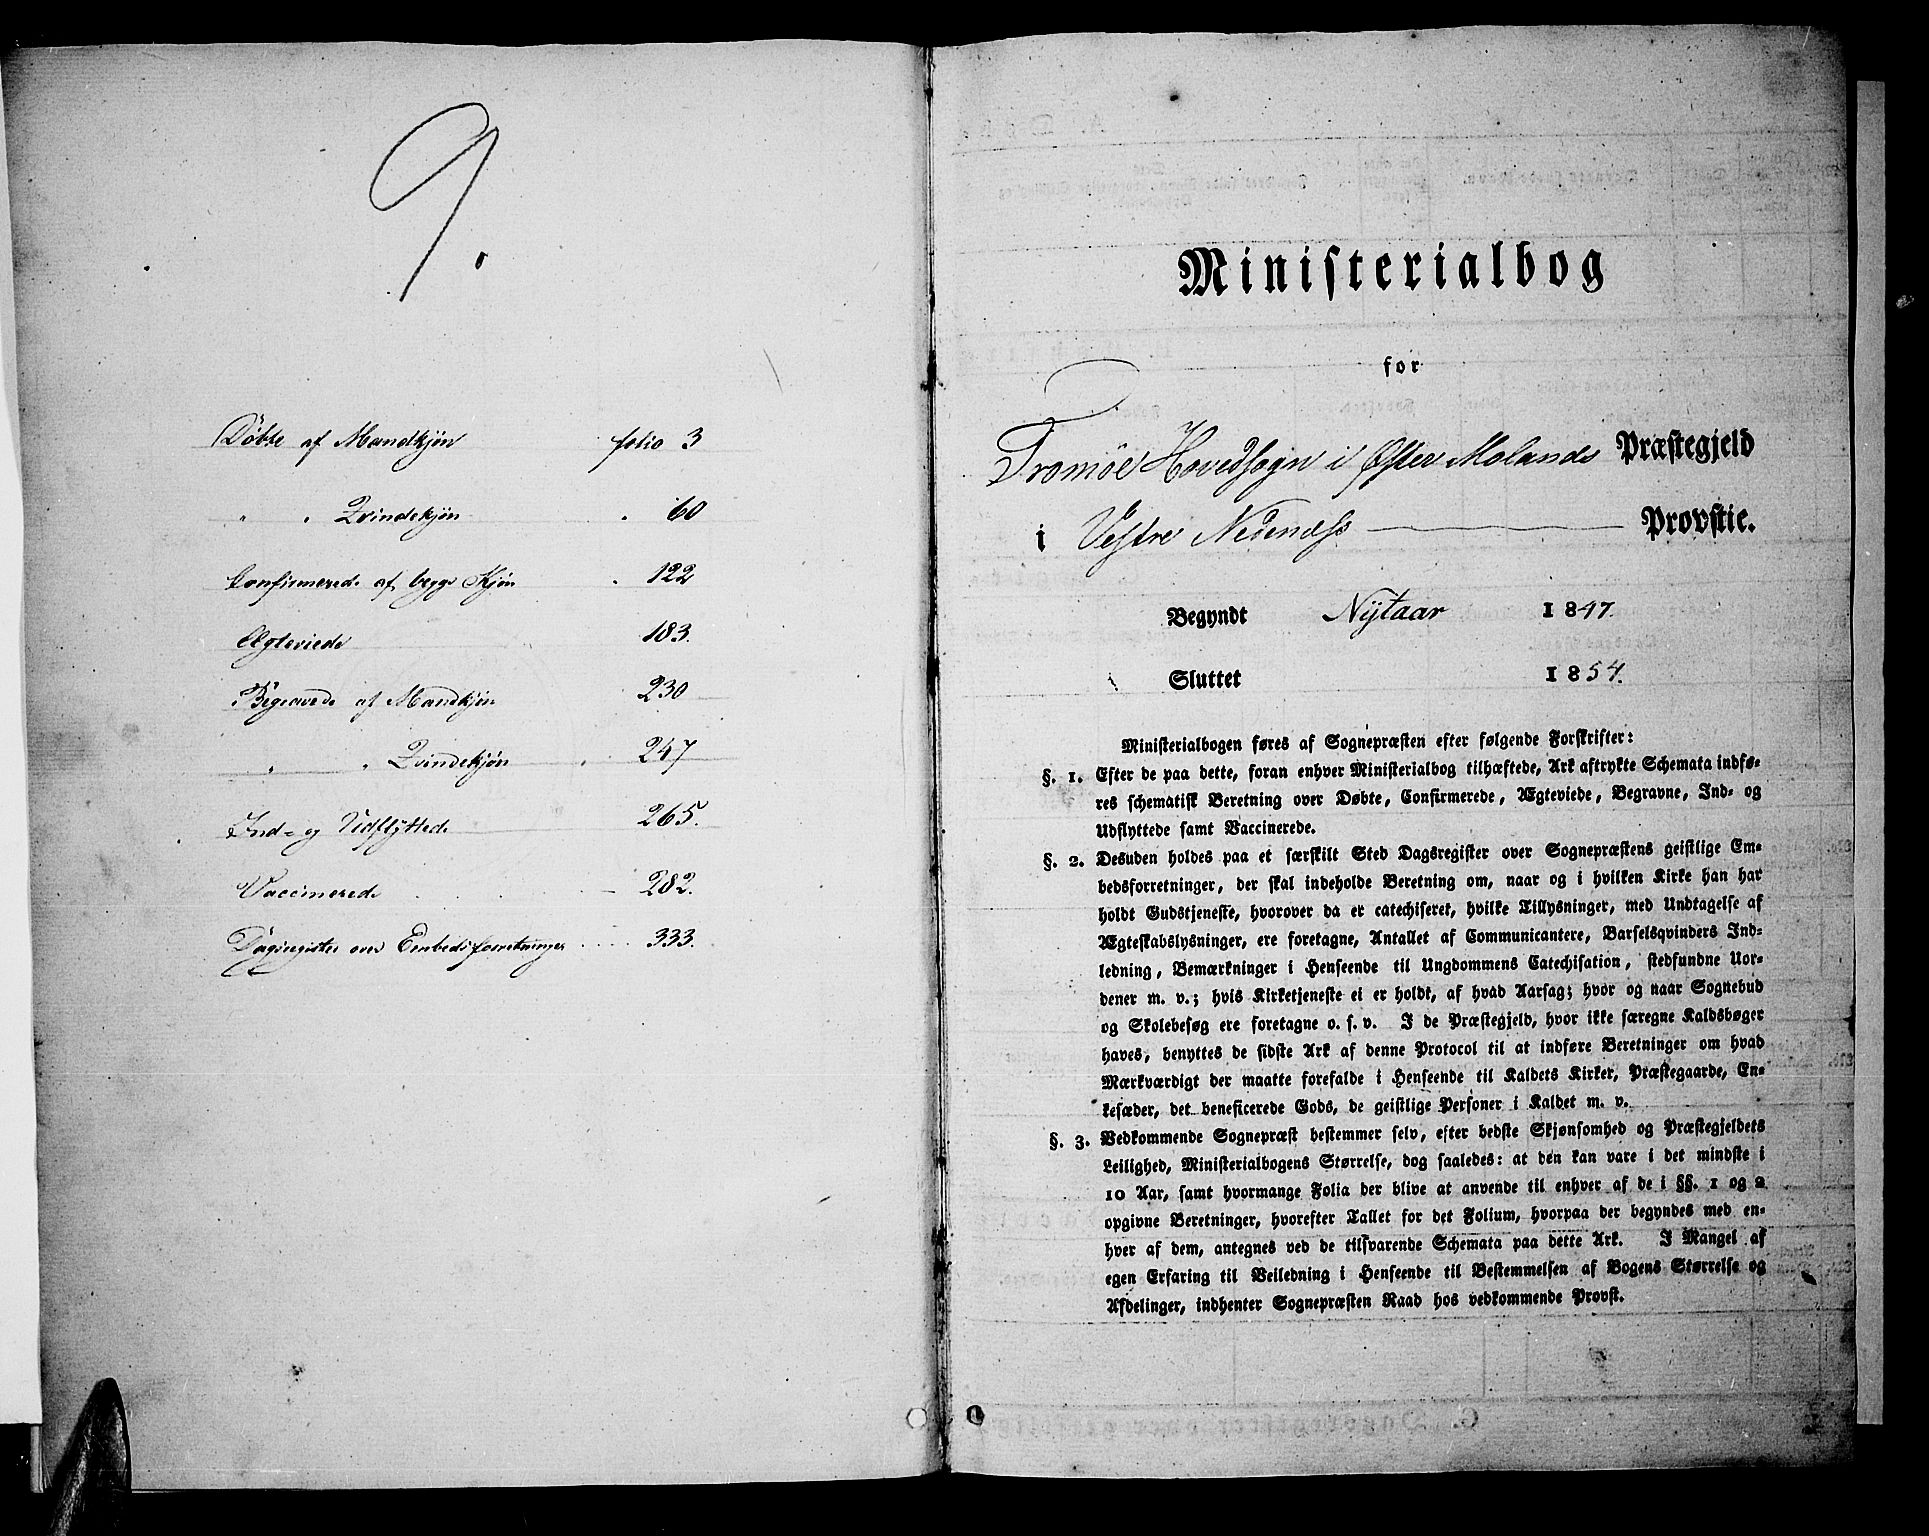 9.
Døbte af Mandkjøn folio 3
" " Qvindekjøn " 60
Confirmerede af begge Kjøn " 122
Ægteviede 183.
Begravede af Mandkjøn 230
" " Qvindekjøn 247
Ind- og Udflyttede 265.
Vaccinerede 282.
Dagsregister over Embedsforretninger 333.
Ministerialbog
for
Tromøe Hovedsogn i Øster Molands Præstegjeld
i Vestre Nedenæs Provstie.
Begyndt Nytaar 1847.
Sluttet 1854.
Ministerialbogen føres af Sognepræsten efter følgende Forskrifter:
§. 1. Efter de paa dette, foran enhver Ministerialbog tilhæftede, Ark aftrykte Schemata indfø-
res schematisk Beretning over Døbte, Confirmerede, Ægteviede, Begravne, Ind- og
Udflyttede samt Vaccinerede.
§. 2. Desuden holdes paa et særskilt Sted Dagsregister over Sognepræstens geistlige Em-
bedsforretninger, der skal indeholde Beretning om, naar og i hvilken Kirke han har
holdt Gudstjeneste, hvorover da er catechiseret, hvilke Tillysninger, med Undtagelse af
Ægteskabslysninger, ere foretagne, Antallet af Communicantere, Barselsqvinders Ind-
ledning, Bemærkninger i Henseende til Ungdommens Catechisation, stedfundne Uor-
dener m. v.; hvis Kirketjeneste ei er holdt, af hvad Aarsag; hvor og naar Sognebud
og Skolebesøg ere foretagne o. s. v. I de Præstegjeld, hvor ikke særegne Kaldsbøger
haves, benyttes de sidste Ark af denne Protocol til at indføre Beretninger om hvad
Mærkværdigt der maatte forefalde i Henseende til Kaldets Kirker, Præstegaarde, En-
kesæder, det beneficerede Gods, de geistlige Personer i Kaldet m. v.
§. 3. Vedkommende Sognepræst bestemmer selv, efter bedste Skjønsomhed og Præstegjeldets
Leilighed, Ministerialbogens Størrelse, dog saaledes: at den kan vare i det mindste i
10 Aar, samt hvormange Folia der blive at anvende til enhver af de i §§. 1 og 2
opgivne Beretninger, hvorefter Tallet for det Folium, hvorpaa der begyndes med en-
hver af dem, antegnes ved de tilsvarende Schemata paa dette Ark. I Mangel af
egen Erfaring til Veiledning i Henseende til Bestemmelsen af Bogens Størrelse og
Afdelinger, indhenter Sognepræsten Raad hos vedkommende Provst.